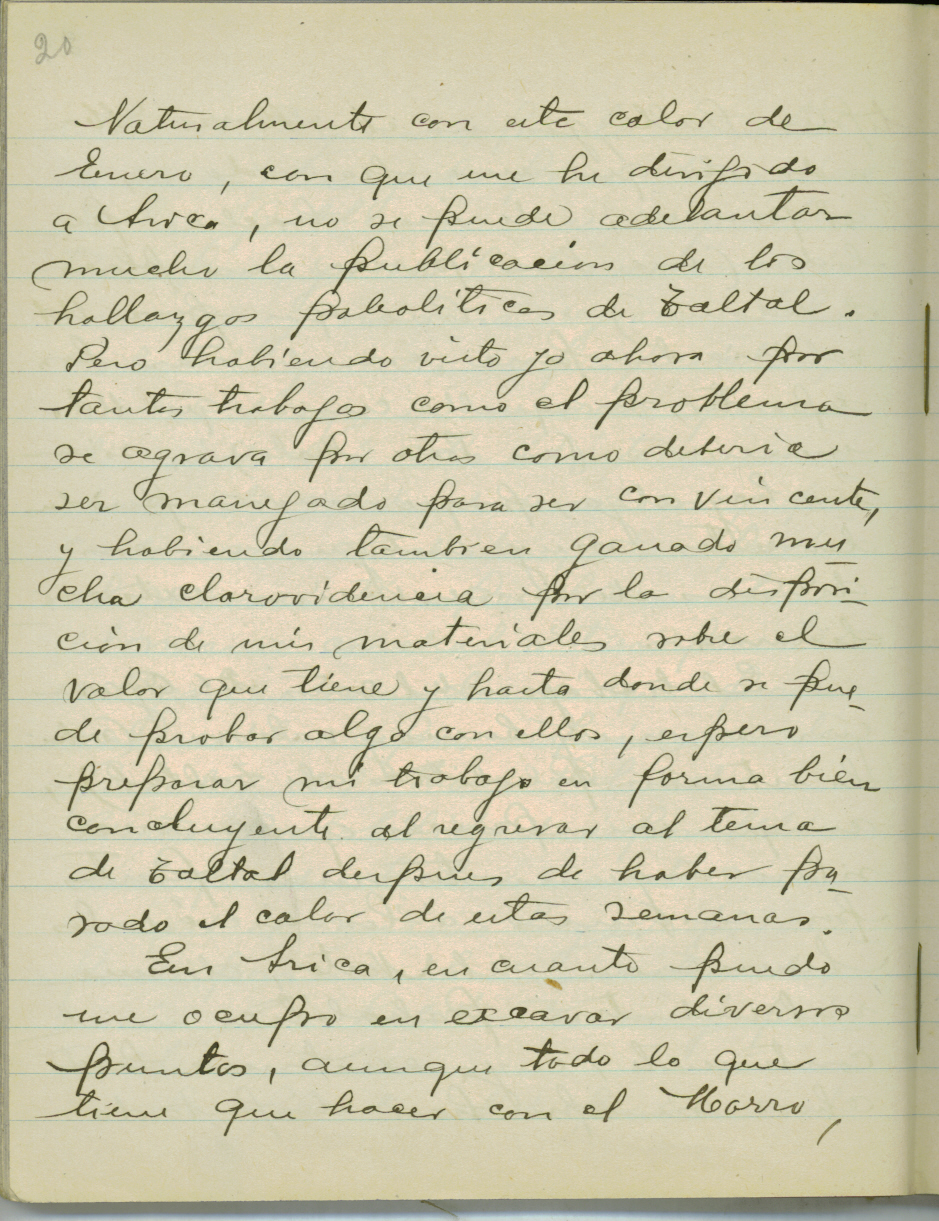 20
Naturalmente con este calor de
Enero, con que me he dirigido
a Arica, no se puede adelantar
mucho la publicación de los
hallazgos paleolíticos de Taltal.
Pero habiendo visto yo ahora por
tantos trabajos como el problema
se agrava por otros como deberia
ser manejado para ser convincente,
y habiendo tambien ganado mu
cha clarovidencia por la disposi-
ción de mis materiales sobre el
valor que tiene y hasta donde se pue-
de probar algo con ellos, espero
preparar mi trabajo en forma bién
concluyente al regresar al tema
de Taltal despues de haber pa-
sado el calor de estas semanas.
En Arica, en cuanto puedo
me ocupo en excavar diversos
puntos, aunque todo lo que
tiene que hacer con el Morro,